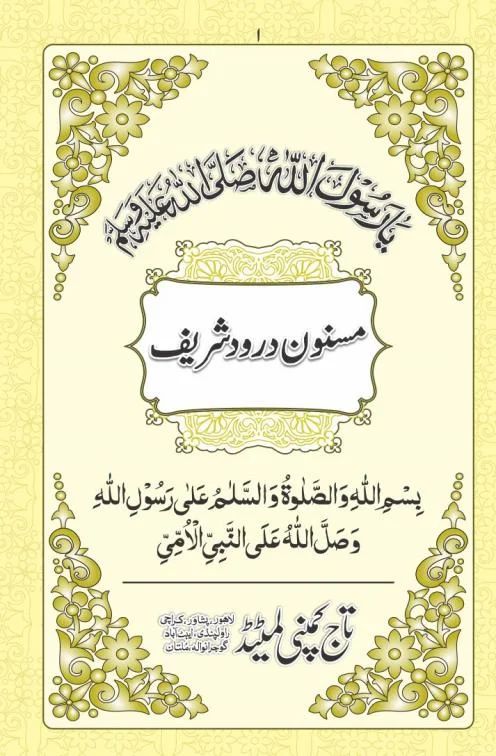 ۱
يَا رَسُوْلَ اللّٰهِ صَلَّى اللّٰهُ عَلَيْهِ وَسَلَّمَ
مسنون درود شریف
بِسْمِ اللّٰهِ وَالصَّلٰوةُ وَالسَّلٰمُ عَلٰى رَسُوْلِ اللّٰهِ
وَصَلَّ اللّٰهُ عَلَى النَّبِيِّ الْاُمِّيِّ
تاج کمپنی لمیٹڈ
لاہور، پشاور، کراچی
راولپنڈی، ایبٹ آباد
گوجرانوالہ، مُلتان